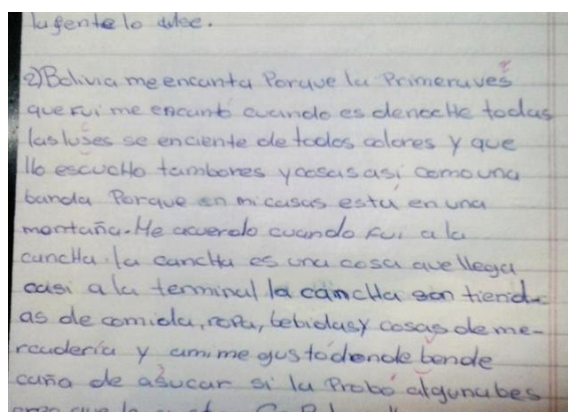 la gente lo dise.
2) Bolivia me encanta Porque la Primera ves
que fui me encantó cuando es de noche todas
las luses se enciente de todos colores y que
llo escucho tambores y cosas asi como una
banda Porque en mi casas esta en una
montaña. He acuerdo cuando fui a la
cancha. la cancha es una cosa que llega
casi a la terminal la cancha son tiend-
as de comida, ropa, bebidas y cosas de me-
rcaderia y a mi me gusto donde bende
caña de asucar si la Probó alguna bes